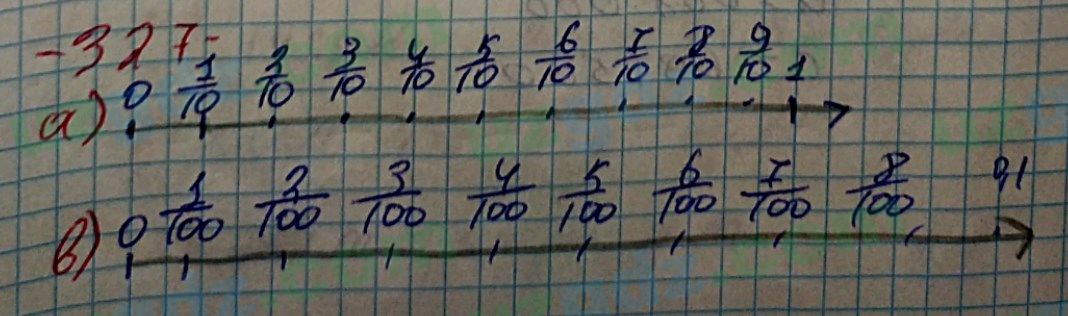 -327-
а) 0 1/10 2/10 3/10 4/10 5/10 6/10 7/10 8/10 9/10 1
в) 0 1/100 2/100 3/100 4/100 5/100 6/100 7/100 8/100 0,1